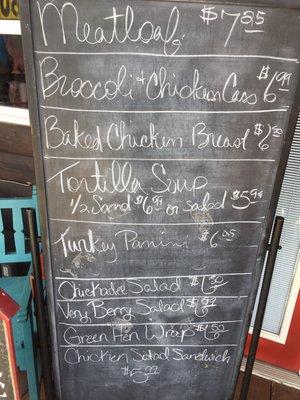 Meatloaf $7.55
Broccoli & Chicken Cass $6.99
Baked Chicken Bread
Tortilla Soup
1/2 Sand $6.99 or salad $5.99
Turkey Panini $6.55
Chickadee Salad
Very Berry Salad
Green Hen Wrap
Chicken Salad Sandwich
$5.99